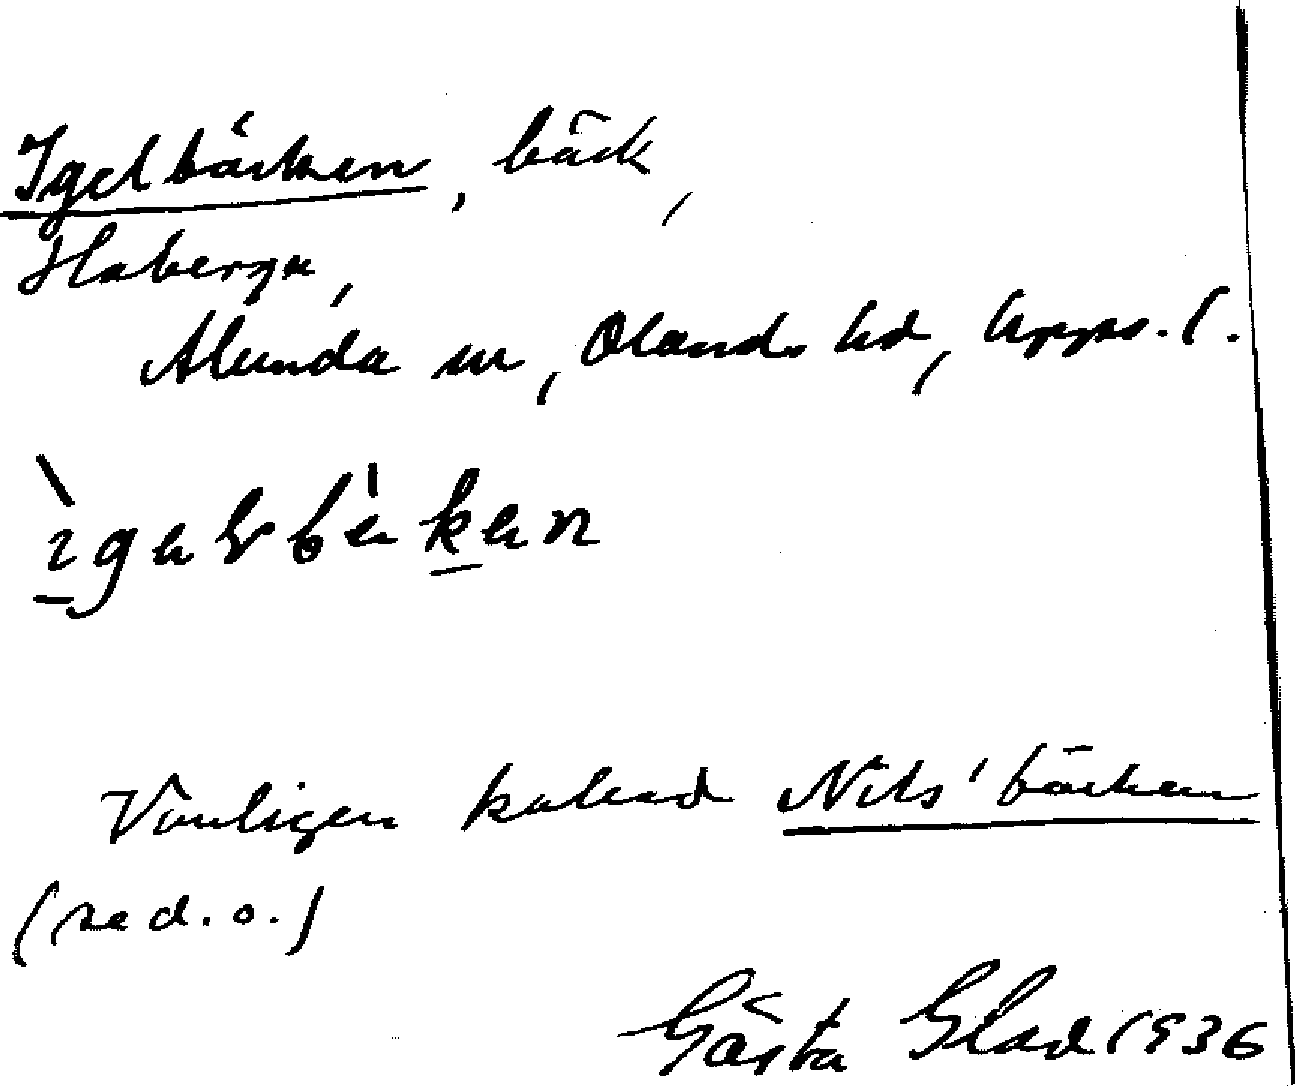 Igelbäcken, bäck,
Haberga,
Alunda sn, Olands hd, Upps. l.
ìgəlbękən
Vanligen kallad Nils' bäcken
(se d. o.)
Gösta Glad 1936